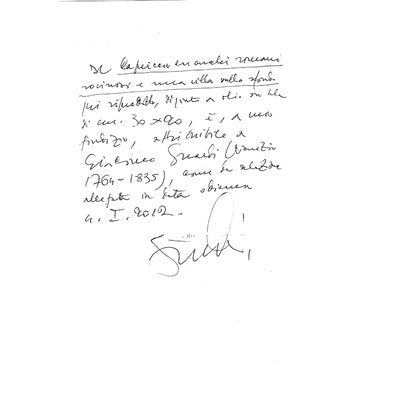 Il Capriccio con archi romani
rovinosi e una villa sullo sfondo
qui riprodotto, dipinto a olio su tela
di cm. 30x20, è, a mio
giudizio, attribuibile a
Giacomo Guardi (Venezia
1764-1835), come da relazione
allegata in data odierna
4. I. 2012.